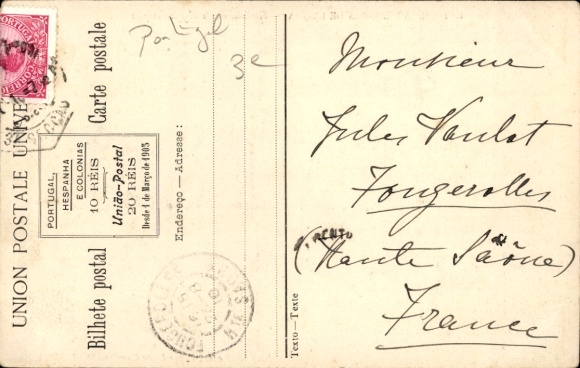 UNION POSTALE UNIVE
Bilhete postal Carte postale
PORTUGAL,
HESPANHA
E COLONIAS
10 RÉIS
União-Postal
20 RÉIS
Desde 1 de Março de 1903
Endereço — Adresse:
Portugal
3e
PORTUGAL
CORREIO
Texto — Texte
Monsieur
Jules Vautot
Fougerolles
(Haute Saône)
France